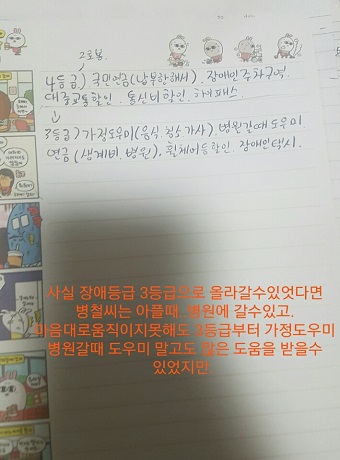 2로봄
4등급) 국민연금(납부한해서). 장애인주차구역.
대중교통할인. 통신비할인. 하이패스
↓
3등급) 가정도우미(음식.청소.가사). 병원갈때도우미
연금(생계비.병원), 휠체어등할인. 장애인택시.
사실 장애등급 3등급으로 올라갈수있엇다면
병철씨는 아플때. 병원에 갈수있고.
마음대로움직이지못해도 3등급부터 가정도우미
병원갈때 도우미 말고도 많은 도움을 받을수
있었지만